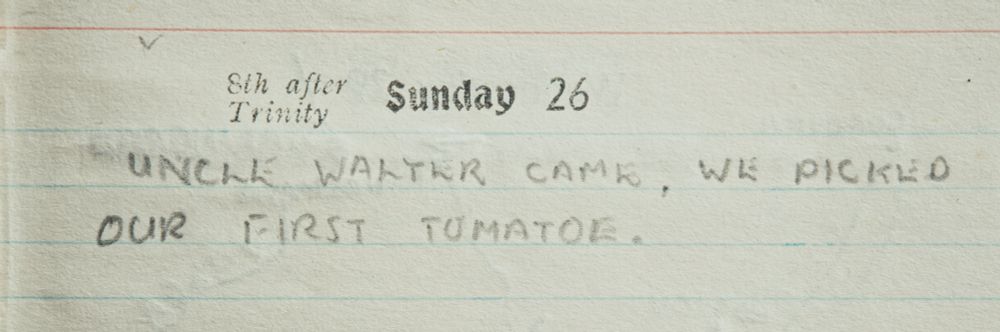 8th after
Trinity
Sunday 26
UNCLE WALTER CAME, WE PICKED
OUR FIRST TUMATOE.